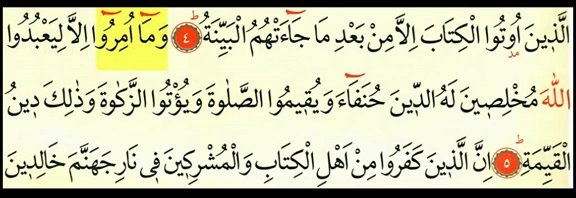 الَّذ۪ينَ اُو۫تُوا الْكِتَابَ اِلَّا مِنْ بَعْدِ مَا جَٓاءَتْهُمُ الْبَيِّنَةُۜ ﴿٤﴾ وَمَٓا اُمِرُٓوا اِلَّا لِيَعْبُدُوا
اللّٰهَ مُخْلِص۪ينَ لَهُ الدّ۪ينَ حُنَفَٓاءَ وَيُق۪يمُوا الصَّلٰوةَ وَيُؤْتُوا الزَّكٰوةَ وَذٰلِكَ د۪ينُ
الْقَيِّمَةِۜ ﴿٥﴾ اِنَّ الَّذ۪ينَ كَفَرُوا مِنْ اَهْلِ الْكِتَابِ وَالْمُشْرِك۪ينَ ف۪ي نَارِ جَهَنَّمَ خَالِد۪ينَ